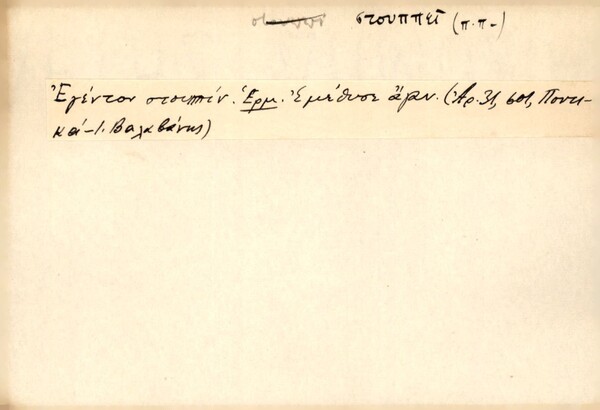 στουππεῖ (π.π-)
Ἐγέντον στουππίν. Ἑρμ. Ἐμέθυσε ἄρν. (Ἀρ. 31, 601, Ποντι-
κά-Ι. Βαλαβάνης)